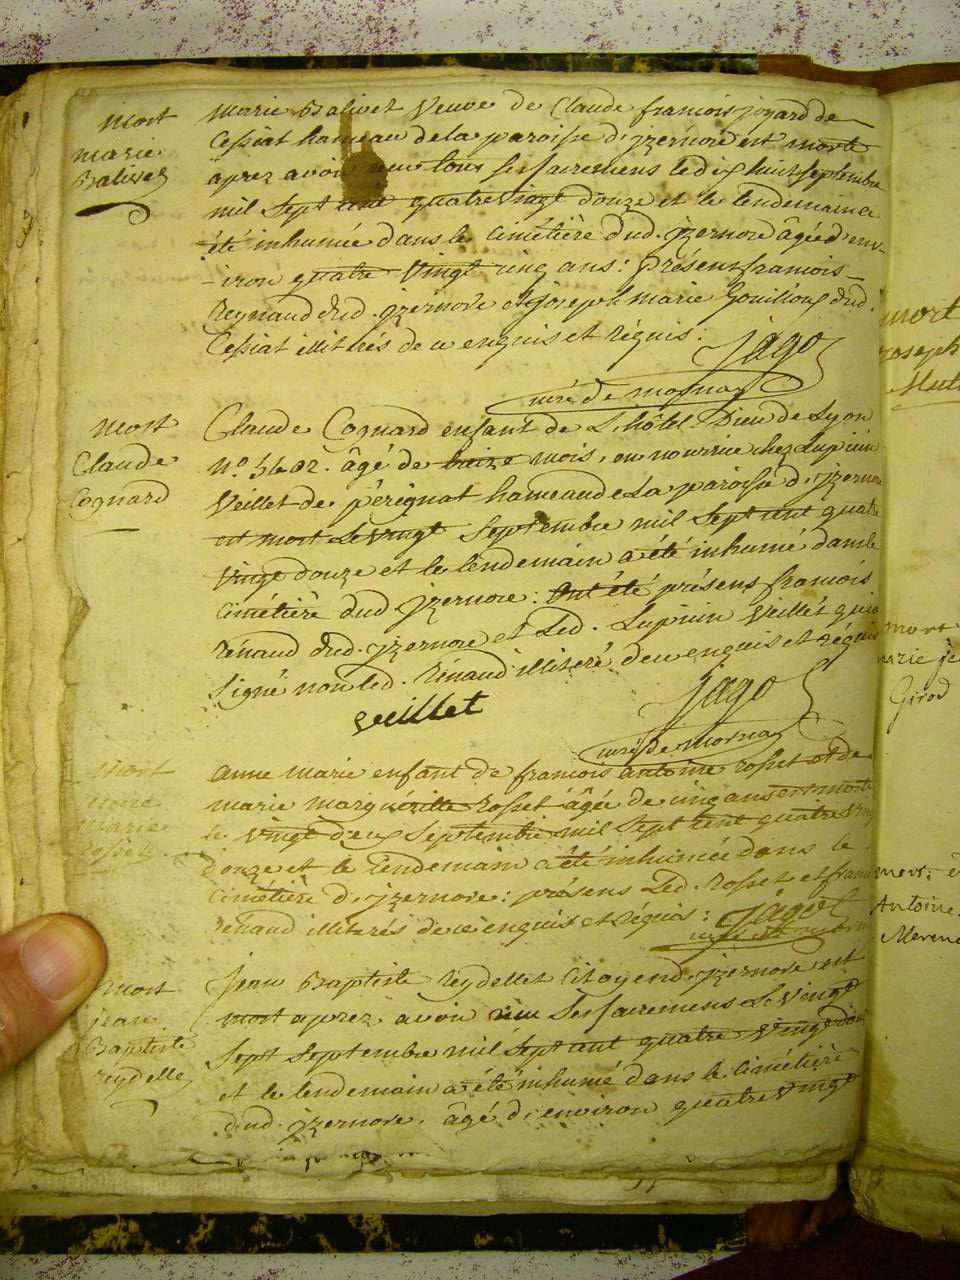 mort
marie
Balivet
Marie Balivet veuve de Claude françois joyard de
Cessiat hameau de la paroisse d'jzernore est morte
aprez avoir reçu tous ses sacremens le dix huit septembre
mil sept cent quatre vingt douze et le lendemain a
été inhumée dans le cimétière dud. jzernore âgée d'en-
-viron quatre vingt cinq ans: présens françois
Reynaud dud. jzernore et joseph marie Gouilloux dud.
Cessiat illitérés de ce enquis et réquis:
jago
curé de mornay
mort
Claude
Cognard
Claude Cognard enfant de L'hôtel-Dieu de Lyon
n.º 5602. âgé de treize mois, en nourrice chez Lupicin
Veillet de pérignat hameau de La paroisse d'jzernore
est mort Le vingt septembre mil sept cent quatre
vingt douze et le lendemain a été inhumé dans le
cimétière dud jzernore: ont été présens françois
Rénaud dud. jzernore et Led. Lupicin Veillet qui a
signé non led. Rénaud illitéré de ce enquis et réquis
veillet
jago
curé de mornay
mort
anne
marie
rosset
anne marie enfant de françois antoine rosset et de
marie marguéritte rosset âgée de cinq ans est morte
le vingt deux septembre mil sept cent quatre vingt
douze et le lendemain a été inhumée dans le
cimétière d'jzernore: présens Led. Rosset et françois
rénaud illitérés de ce enquis et réquis:
jago
mort
jean
Baptiste
reydellet
jean Baptiste reydellet citoyen d'jzernore, est
mort aprez avoir reçu ses sacremens Le vingt
sept septembre mil sept cent quatre vingt douze
et le lendemain a été inhumé dans le cimétière
dud. jzernore. âgé d'environ quatre vingt
mort
joseph
mort
marie je
Girod
mort
Antoine